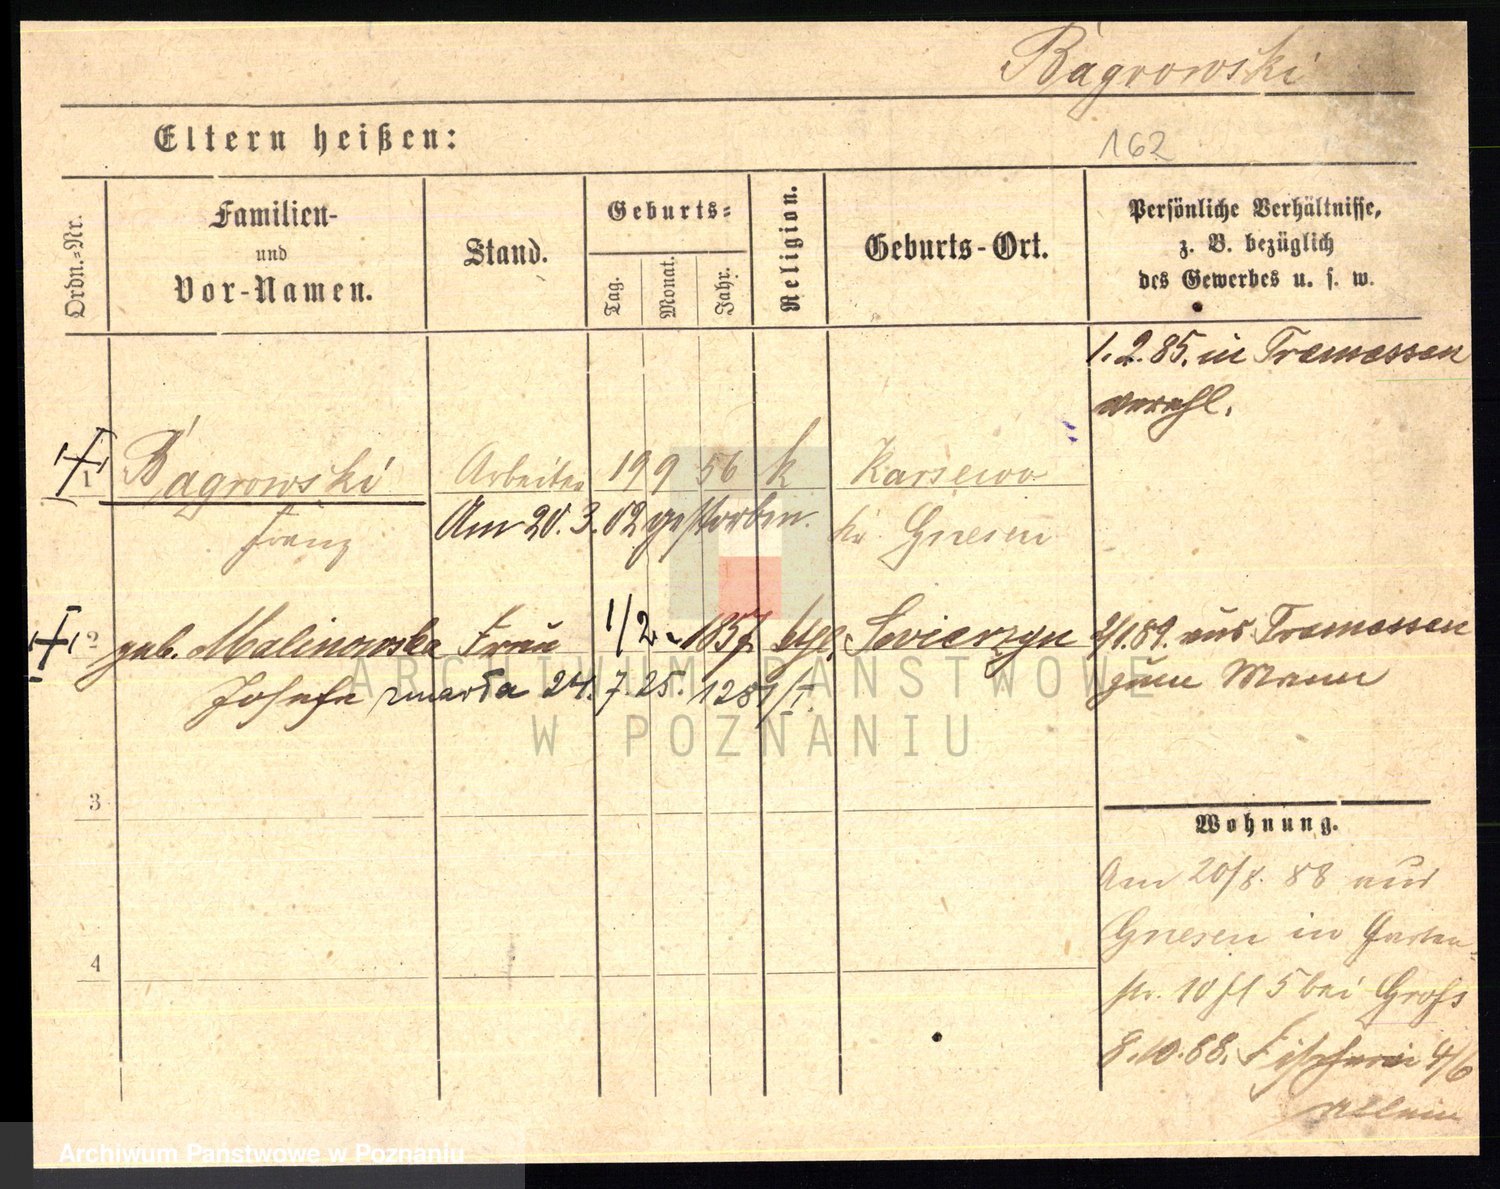 Bągrowski
Eltern heißen:
162
Ordn.-Nr.
Familien-
und
Vor-Namen.
Stand.
Geburts-
Tag.
Monat.
Jahr.
Religion.
Geburts-Ort.
Persönliche Verhältnisse,
z. B. bezüglich
des Gewerbes u. s. w.
1.2.85. in Tremessen
verehl.
1 Bągrowski Arbeiter 19 9 56 k Karsewo
Franz Am 20.3.02 gestorben. kr. Gnesen
2 geb. Malinowska Frau 1/2 1857 ktgl. Swierzyn 2/1.89. aus Tremessen
Josefa zmarła 24.7.25. zum Mann
ARCHIWUM PAŃSTWOWE
W POZNANIU
3
Wohnung.
Am 20/8. 88 aus
Gnesen in Garten-
str. 10 bei Gross
4
8.10.88. Fischerei 4/6
allein
Archiwum Państwowe w Poznaniu